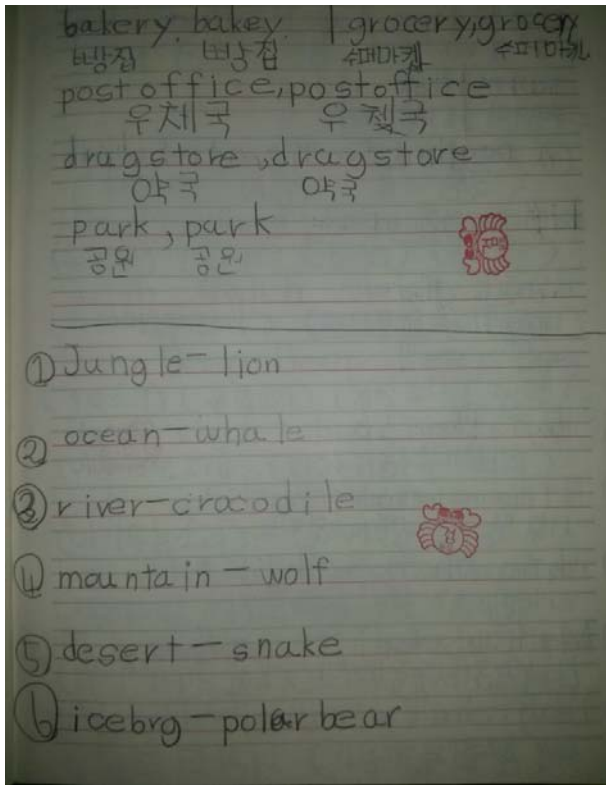 bakery, bakey | grocery, grocery
빵집 빵집 수퍼마켙 수퍼마켙
post office, post office
우체국 우쳌국
drug store, drug store
약국 약국
park, park
공원 공원
① Jungle - lion
② ocean - whale
③ river - crocodile
검
④ mountain - wolf
⑤ desert - snake
⑥ icebrg - polar bear